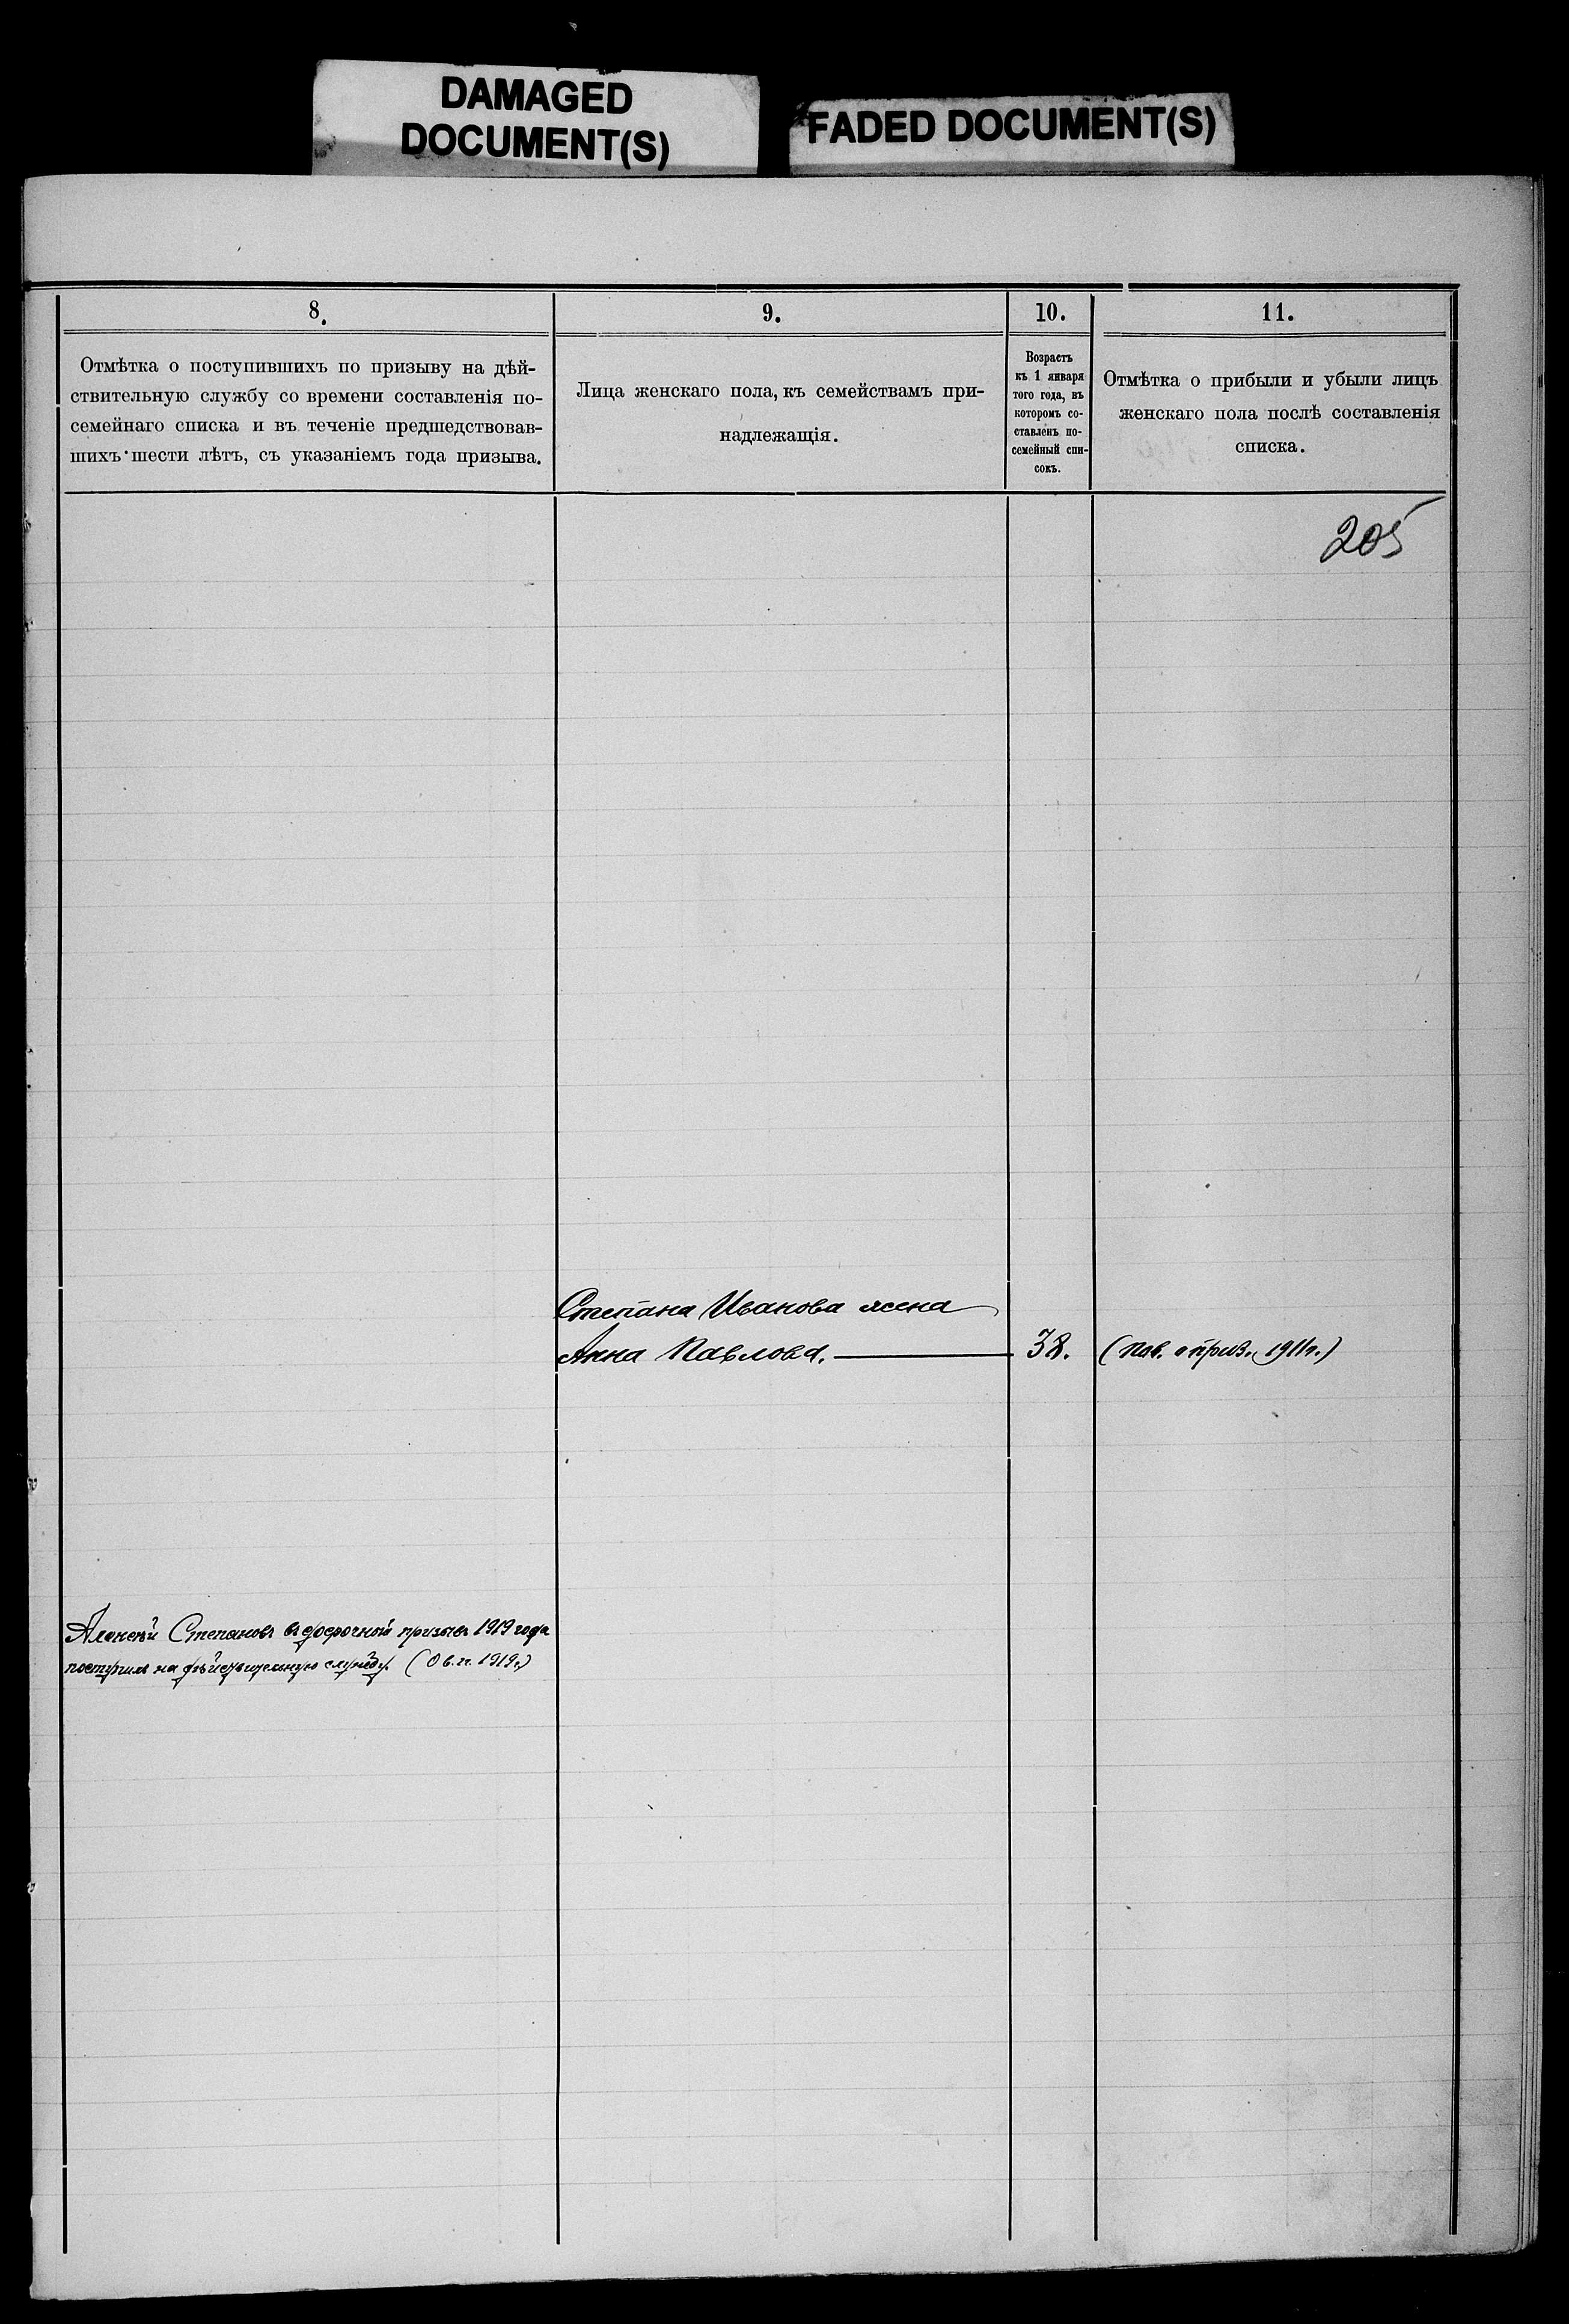 DAMAGED
DOCUMENT(S)
FADED DOCUMENT(S)
8.
Отмѣтка о поступившихъ по призыву на дѣй-
ствительную службу со времени составленія по-
семейнаго списка и въ теченіе предшедствовав-
шихъ шести лѣтъ, съ указаніемъ года призыва.
9.
Лица женскаго пола, къ семействамъ при-
надлежащія.
10.
Возрастъ
къ 1 января
того года, въ
которомъ со-
ставленъ по-
семейный спи-
сокъ.
11.
Отмѣтка о прибыли и убыли лицъ
женскаго пола послѣ составленія
списка.
205
Степана Иванова жена
Анна Павлова. 38. 1911г.)
Алексѣй Степановъ въ досрочный призывъ 1919 года
поступилъ на дѣйствительную службу. (О в. п. 1919г.)